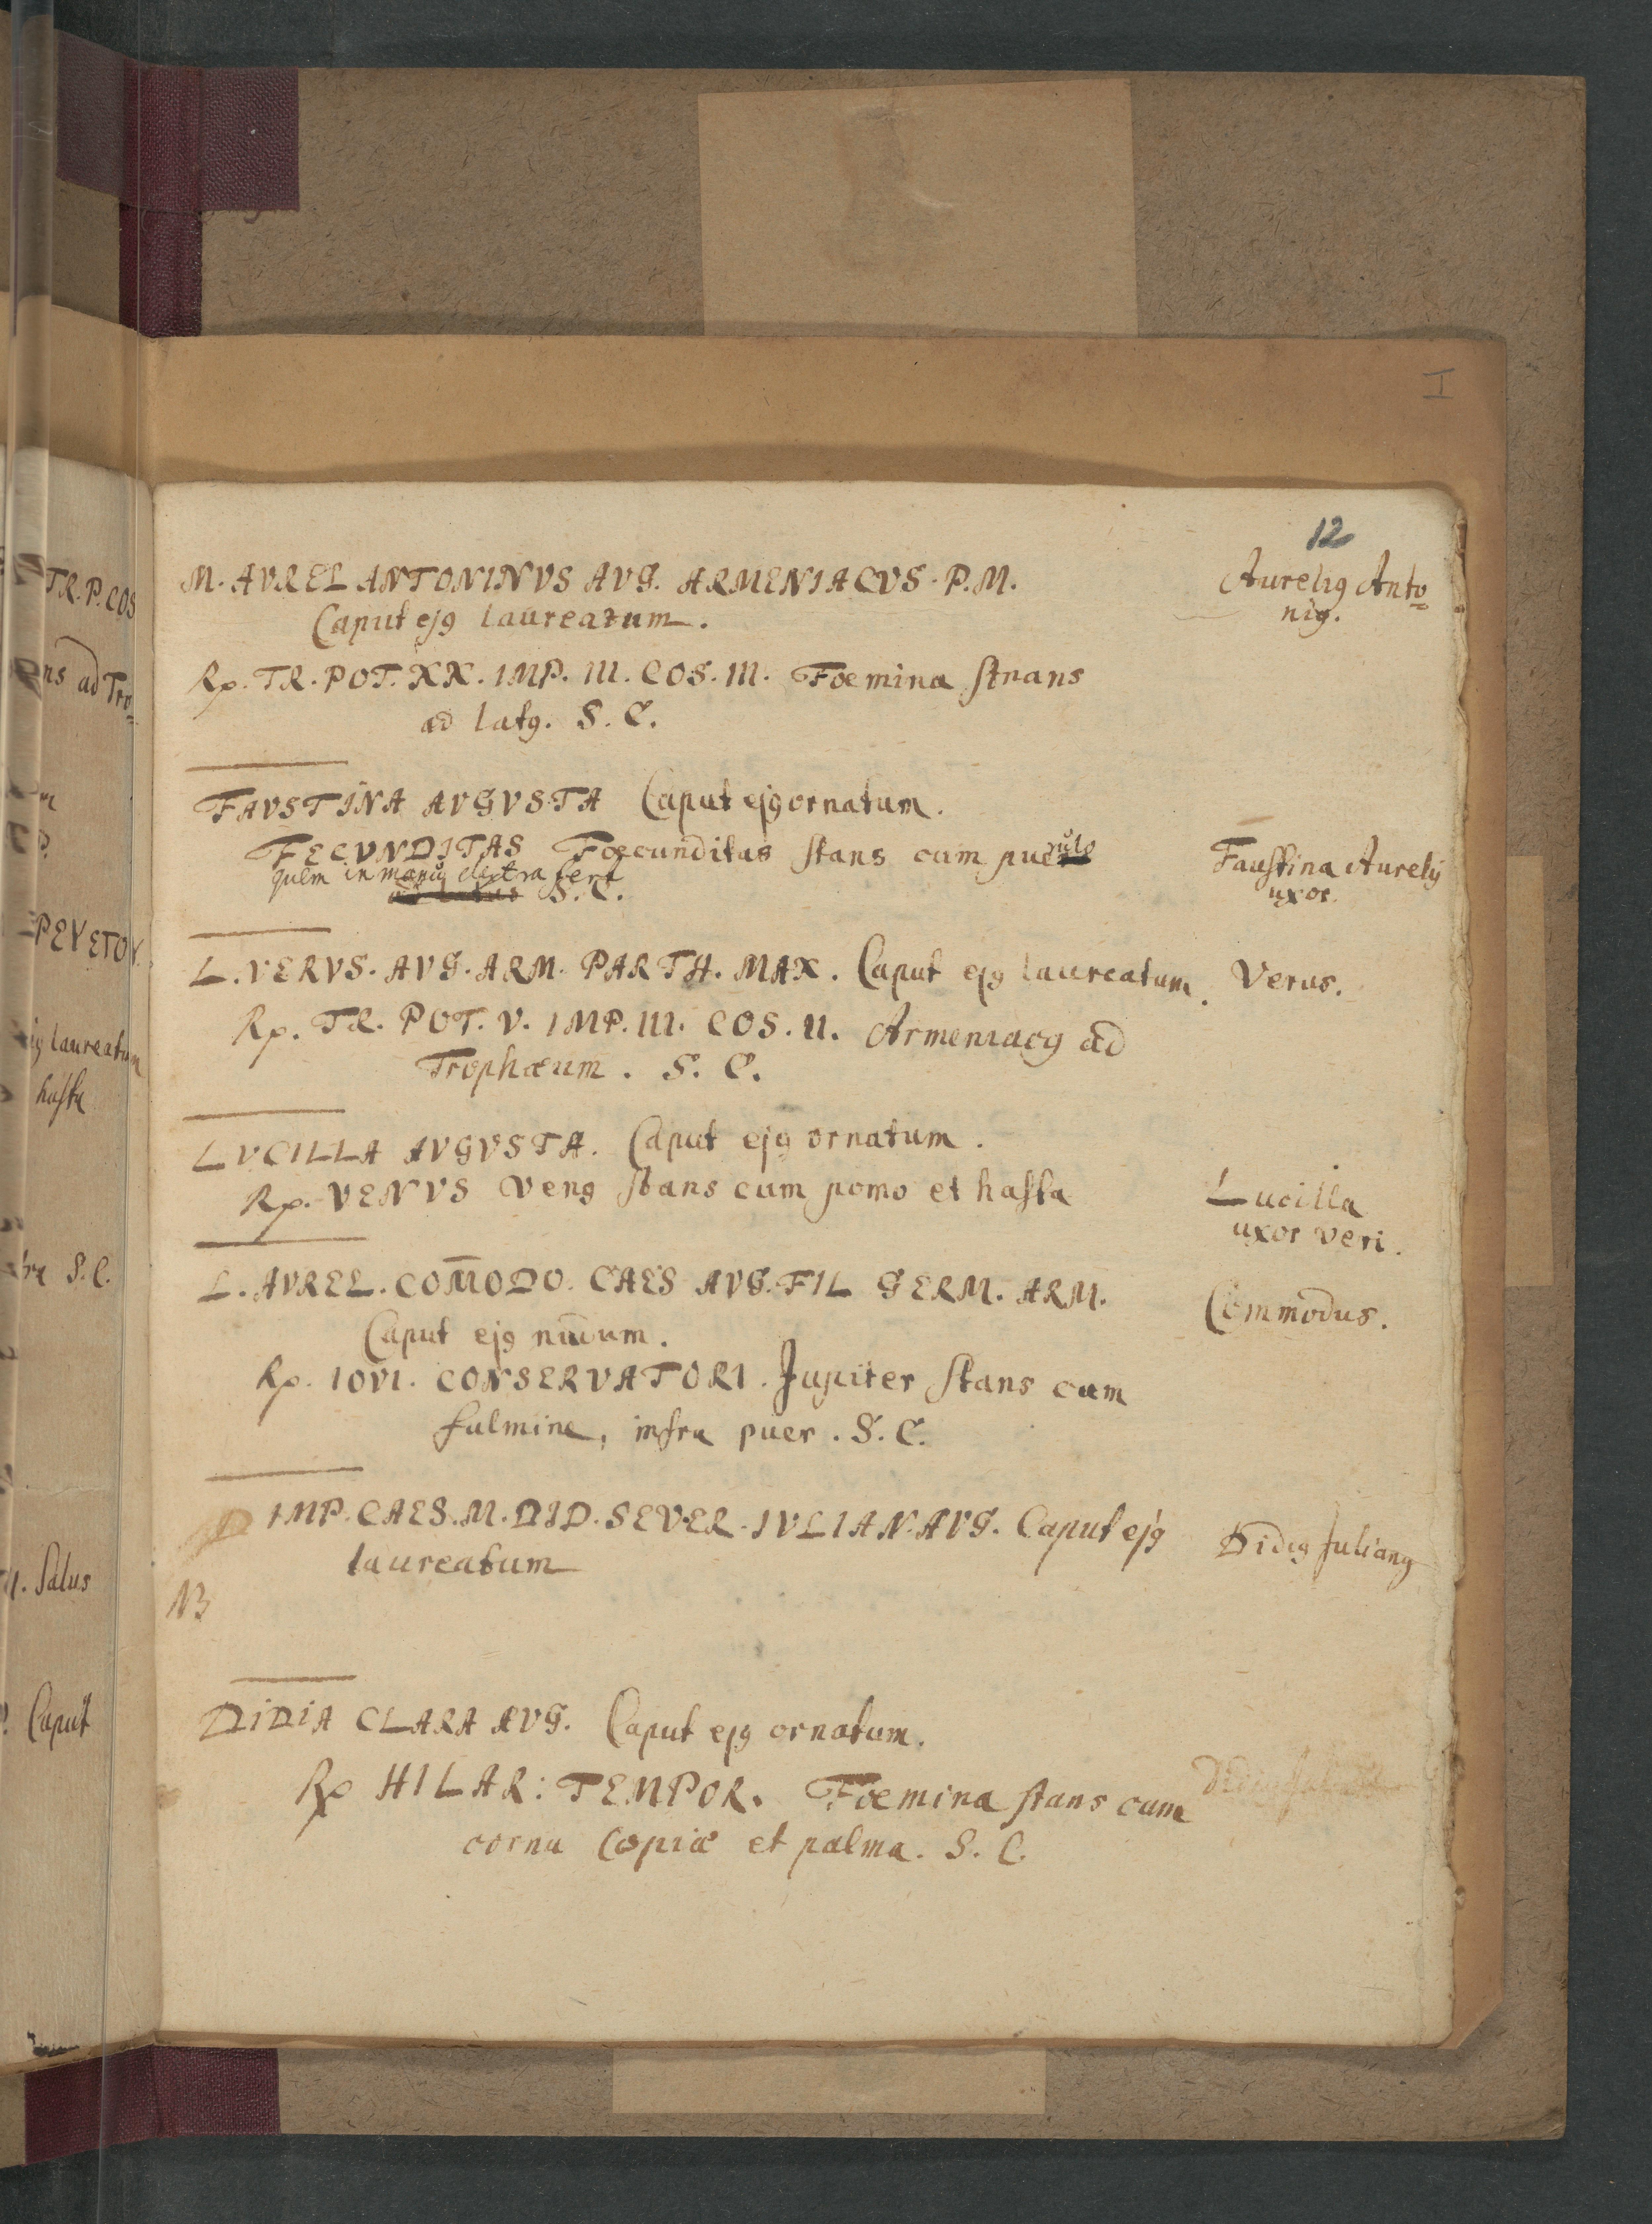 I
12
M. AVREL ANTONINVS AVG. ARMENIACVS. P.M.
Caput ejꝰ laureatum.
Aureliꝰ Anto=
niꝰ.
Rp. TR. POT. XX. IMP. III. COS. III. Foemina stnans
ad latꝰ. S. C.
FAVSTINA AVGVSTA Caput ejꝰ ornatum.
FECVNDITAS Foecunditas stans cum puerulo
quem in manu dextra fert
S. C.
Faustina Aurelij
uxor.
L. VERVS. AVG. ARM. PARTH. MAX. Caput ejꝰ laureatum.
Verus.
Rp. TR. POT. V. IMP. III. COS. II. Armeniacꝰ ad
Trophæum. S. C.
LVCILLA AVGVSTA. Caput ejꝰ ornatum.
Rp. VENVS Venꝰ stans cum pomo et hasta
Lucilla
uxor Veri.
L. AVREL. COM̄ODO. CAES AVG. FIL GERM. ARM.
Commodus.
Caput ejꝰ nudum.
Rp. IOVI. CONSERVATORI. Jupiter stans cum
fulmine, infra puer. S. C.
IMP. CAES. M. DID. SEVER. IVLIAN. AVG. Caput ejꝰ
laureatum
Didiꝰ Julianꝰ
NB
DIDIA CLARA AVG. Caput ejꝰ ornatum.
Rp HILAR: TEMPOR. Foemina stans cum
cornu Copiæ et palma. S. C.
TR. P. COS
ns ad Tro=
PEYETOY.
iꝰ laureatum
hasta
S. C.
Salus
Caput